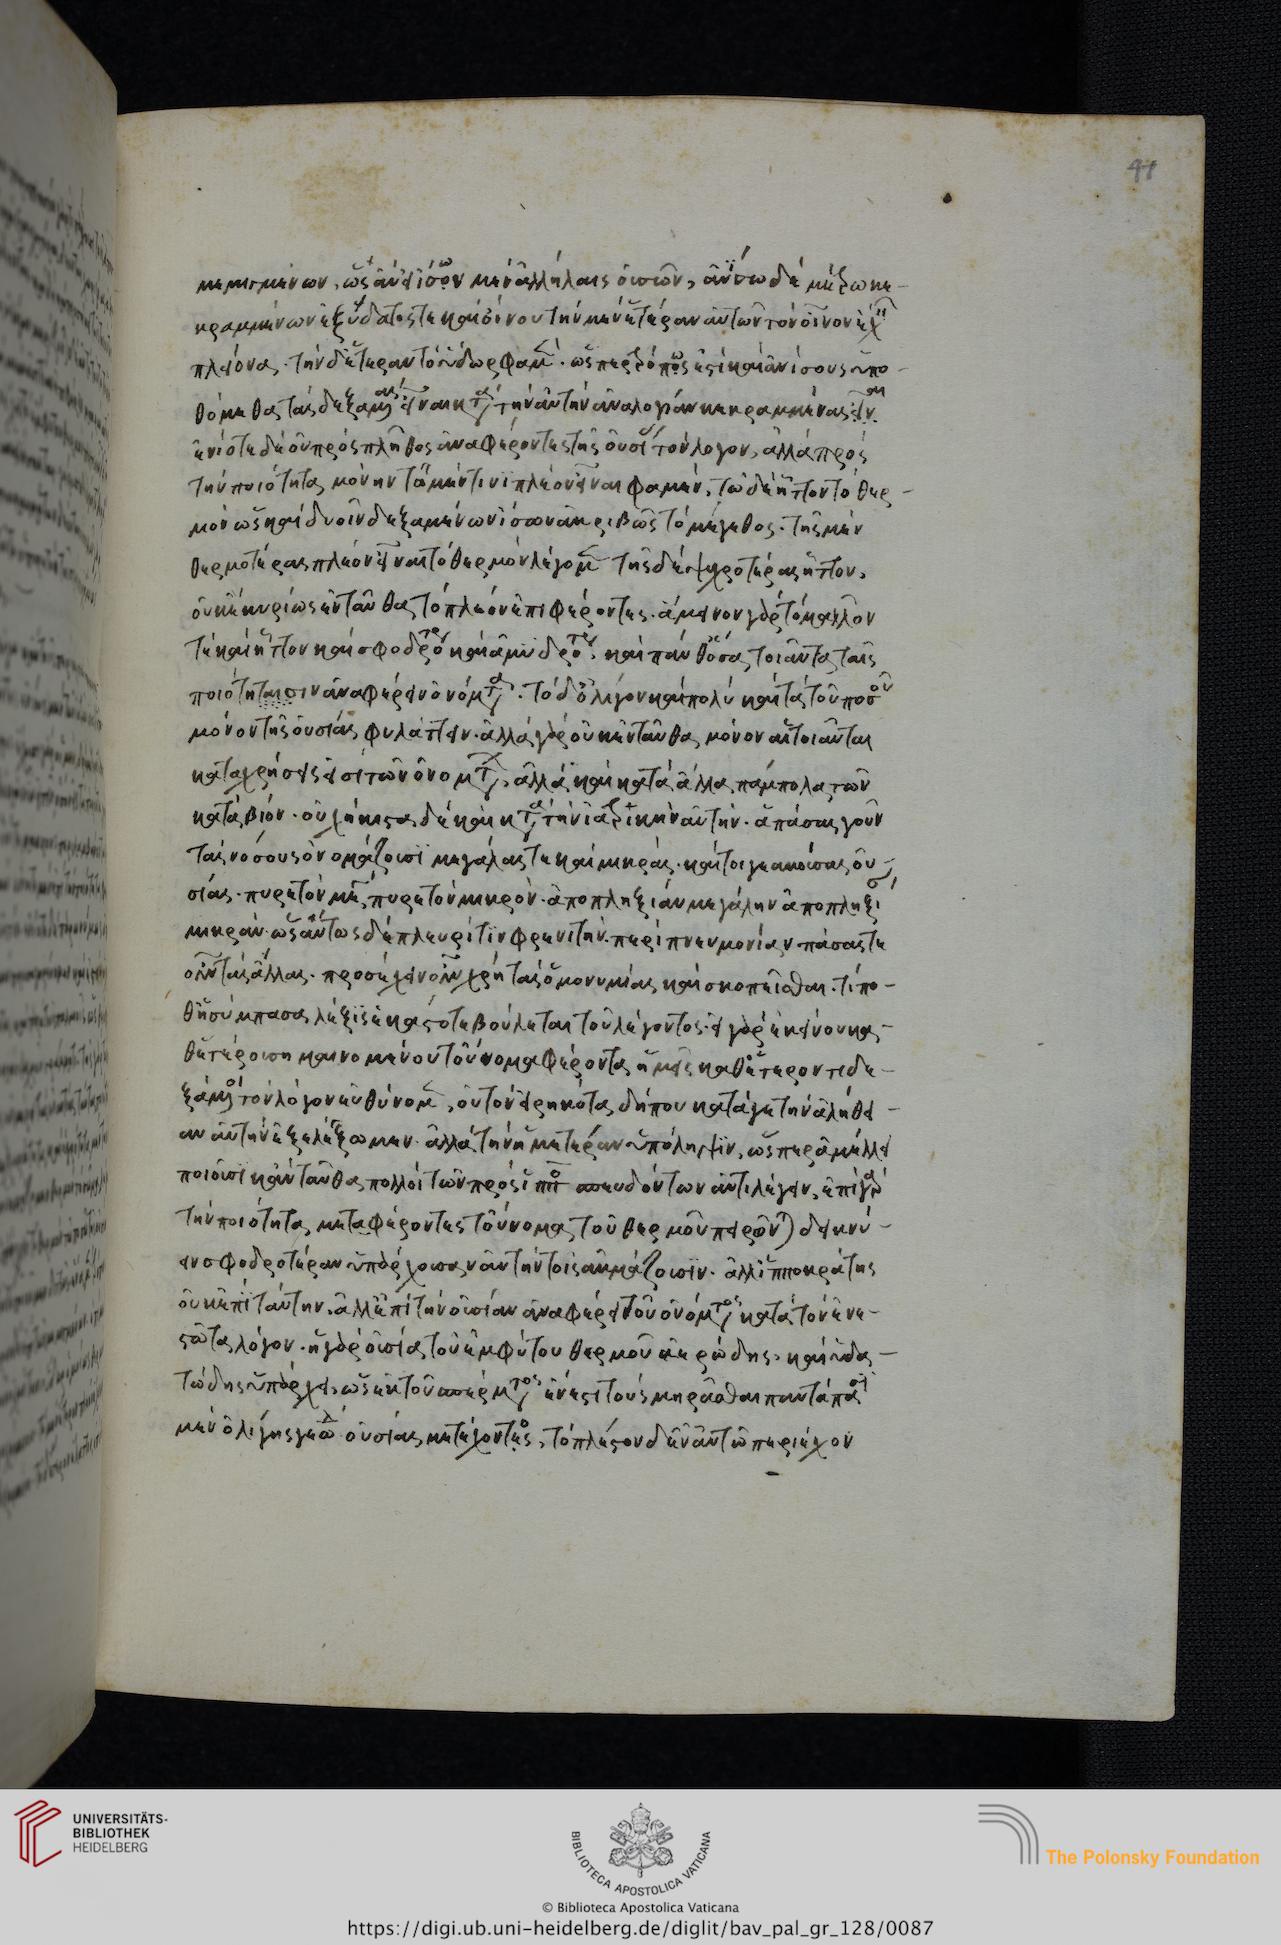 41
κεκισμένων, ὡς ἂν ἐξ ἴσων μὲν ἀλλήλαις οὐσῶν, ἀνίσω δὲ μέτρω κε-
κραμμένων ἐξ ὕδατός τε καὶ οἴνου τὴν μὲν ἑτέραν αὐτῶν τὸν οἶνον ἔχειν
πλείονα. τὴν δ' ἑτέραν τὸ ὕδωρ φαμέν. ὥσπερ
θόμεθα τὰς δεξαμενὰς εἶναι κατὰ τὴν αὐτὴν ἀναλογίαν κεκραμμένας εἶναι.
ἐνίοτε δὲ οὐ πρὸς πλῆθος ἀναφέροντες τῆς οὐσίας τὸν λόγον, ἀλλὰ πρὸς
τὴν ποιότητα μόνην τῶ μέν τινι πλέον εἶναι φαμὲν, τῶ δὲ ἧττον τὸ θερ-
μὸν ὡς καὶ δυοῖν δεξαμενῶν ἴσων ἀκριβῶς τὸ μέγεθος. τῆς μὲν
θερμοτέρας πλέον εἶναι τὸ θερμὸν λέγομεν τῆς δὲ ψυχροτέρας ἧττον,
οὐκέτι κυρίως ἐνταῦθα τὸ πλέον ἐπιφέροντες. ἄμεινον γὰρ τὸ μᾶλλον
τε καὶ ἧττον καὶ σφοδρότερον καὶ ἀμυδρότερον. καὶ πάνθ' ὅσα τοιαῦτα ταῖς
ποιότησιν ἀναφέρειν ὀνόματα. τὸ δ' ὀλίγον καὶ πολὺ κατὰ τοῦ ποσοῦ
μόνον τῆς οὐσίας φυλάττειν. ἀλλὰ γὰρ οὐκ ἐνταῦθα μόνον αἱ τοιαῦται
καταχρήσεις εἰσὶ τῶν ὀνομάτων, ἀλλὰ καὶ κατὰ ἄλλα πάμπολα τῶν
κατὰ βίον. οὐχ ἥκιστα δὲ καὶ κατὰ τὴν ἰατρικὴν αὐτὴν. ἁπάσας γοῦν
τὰς νόσους ὀνομάζουσι μεγάλας τε καὶ μικράς. καίτοι γε ἀποίους οὐ-
σίας. πυρετὸν μέγαν πυρετὸν μικρόν. ἀποπληξίαν μεγάλην ἀποπληξίαν
μικράν. ὡσαύτως δὲ πλευρῖτιν φρενῖτιν. περιπνευμονίαν. πάσας τε
οὖν τὰς ἄλλας. προσέχειν οὖν χρὴ ταῖς ὁμονυμίαις καὶ σκοπεῖσθαι. τί πο-
θ' ἡ σύμπασα λέξις ἑκάστοτε βούλεται τοῦ λέγοντος. εἰ γὰρ ἐκείνου κα-
θ' ἑτέρου σημαινομένου τοὔνομα φέροντα ἡμεῖς καθ' ἕτερόν τι δε-
ξάμενοι τὸν λόγον εὐθύνομεν, οὐ τὸν εἰρηκότα δήπου κατά γε τὴν ἀλήθει-
αν αὐτὴν ἐξελέγξωμεν. ἀλλὰ τὴν ἡμετέραν ὑπόληψιν, ὥσπερ ἀμέλει
ποιοῦσι κἀνταῦθα πολλοὶ τῶν πρὸς ἱππο σπευδόντων ἀντιλέγειν. ἐπὶ γὰρ
τὴν ποιότητα μεταφέροντες τοὔνομα τοῦ θερμοῦ πειρῶνται δεικνύ-
ειν σφοδροτέραν ὑπάρχουσαν αὐτὴν τοῖς ἀκμάζουσιν. ἀλλ' ἱπποκράτης
οὐκ ἐπὶ ταύτην. ἀλλ' ἐπὶ τὴν οὐσίαν ἀναφέρει τοῦ ὀνόματος κατὰ τὸν ἐνε-
στῶτα λόγον. ἡ γὰρ οὐσία τοῦ ἐμφύτου θερμοῦ ἀερώδης. καὶ ὑδα-
τώδης ὑπάρχει, ὡς ἐκ τοῦ σπέρματος ἔνεστι τοὺς
μὲν ὀλίγης γεώ οὐσίας μετέχοντος, τὸ πλεῖστον δ' ἐν αὐτῶ περιέχον
UNIVERSITÄTS-
BIBLIOTHEK
HEIDELBERG
BIBLIOTECA APOSTOLICA VATICANA
The Polonsky Foundation
© Biblioteca Apostolica Vaticana
https://digi.ub.uni-heidelberg.de/diglit/bav_pal_gr_128/0087